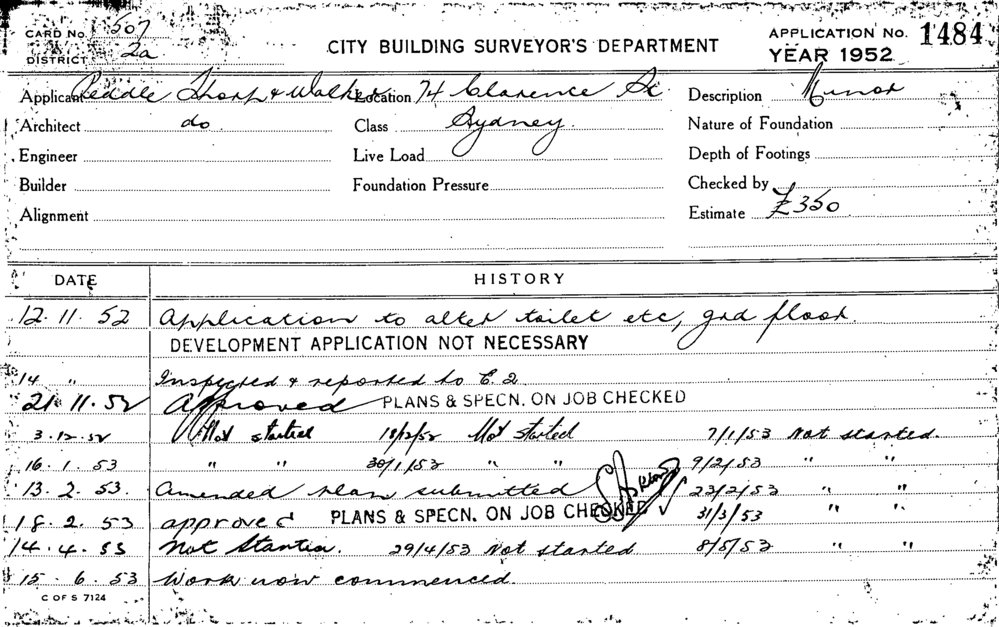 CARD No. 507
DISTRICT 2a
CITY BUILDING SURVEYOR'S DEPARTMENT
APPLICATION No. 1484
YEAR 1952
Applicant Peddle Thorp & Walker Location 74 Clarence St Description Minor
Architect do Class Sydney Nature of Foundation
Engineer Live Load Depth of Footings
Builder Foundation Pressure Checked by
Alignment Estimate £350
DATE HISTORY
12. 11. 52 Application to alter toilet etc, grd floor.
DEVELOPMENT APPLICATION NOT NECESSARY
14 " Inspected & reported to C. 2
21. 11. 52 Approved PLANS & SPECN. ON JOB CHECKED
3. 12. 52 Not started 18/12/52 Not started 7/1/53 Not started.
16. 1. 53 " " 30/1/53 " " 9/2/53 " "
13. 2. 53. Amended plan submitted 23/2/53 " "
18. 2. 53 approved PLANS & SPECN. ON JOB CHECKED 31/3/53 " "
14. 4. 53 Not Started. 29/4/53 Not started 8/5/53 " "
15. 6. 53 Work now commenced.
C OF S 7124